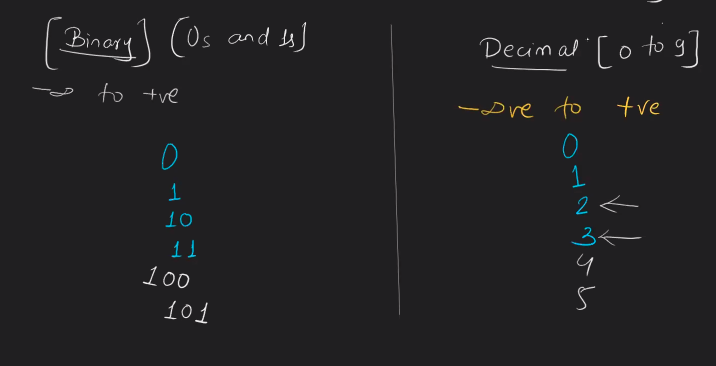 [Binary] (0s and 1s)
-∞ to +ve
0
1
10
11
100
101
Decimal [0 to 9]
-∞ve to +ve
0
1
2 ←
3 ←
4
5